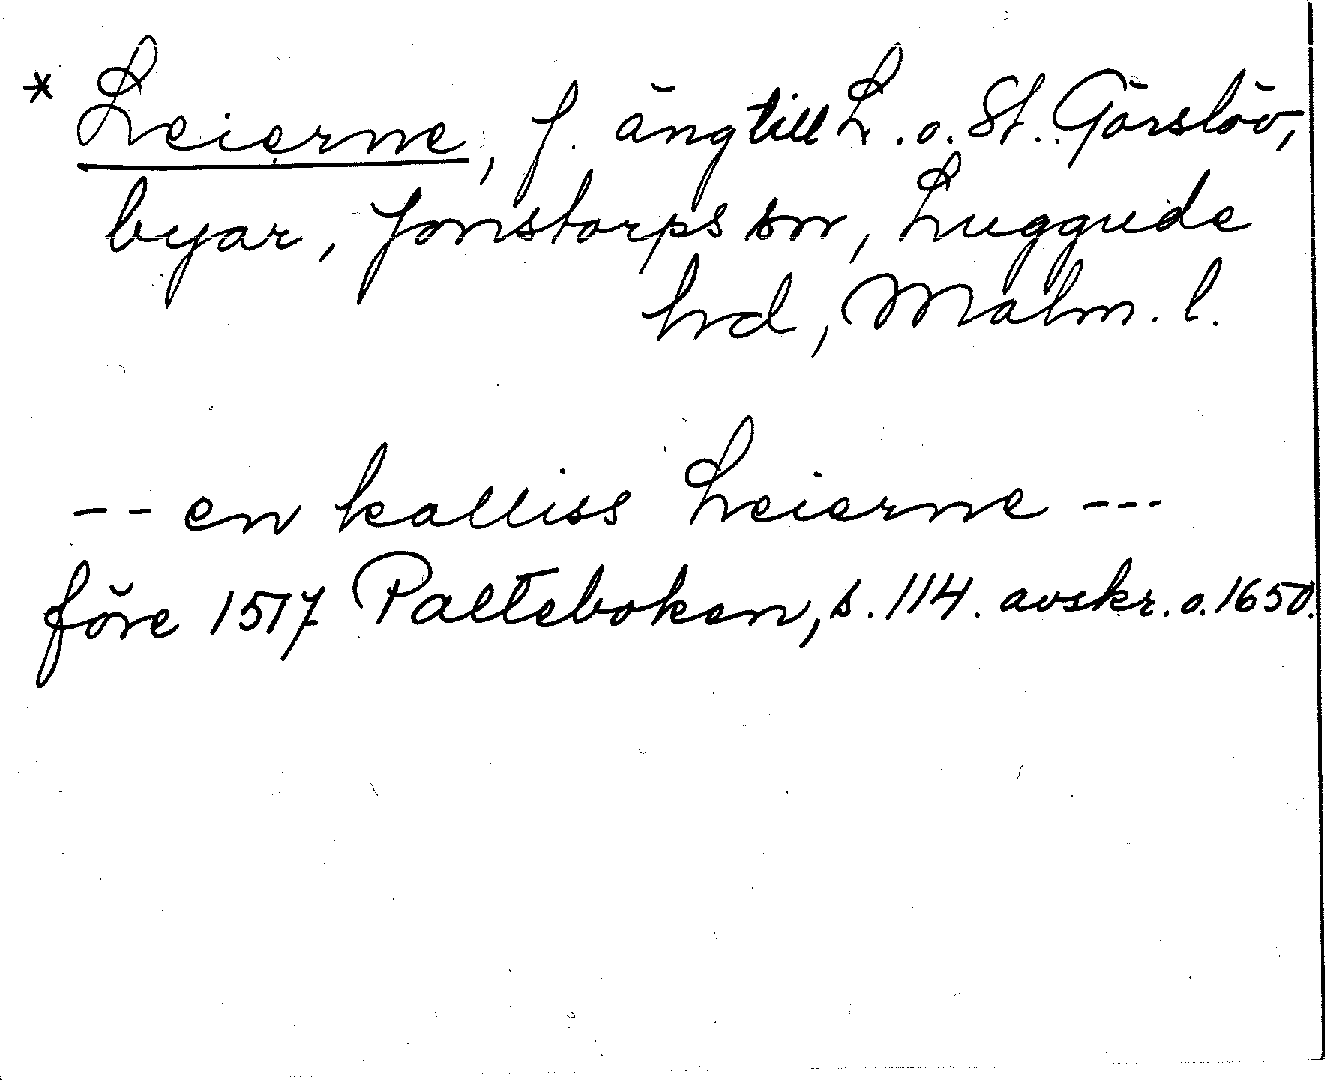 * Leierne, f. äng till L. o. St. Görslöv,
byar, Jonstorps sn, Luggude
hd, Malm. l.
-- en kalliss Leierne ---
före 1517 Palteboken, s. 114. avskr. o. 1650.